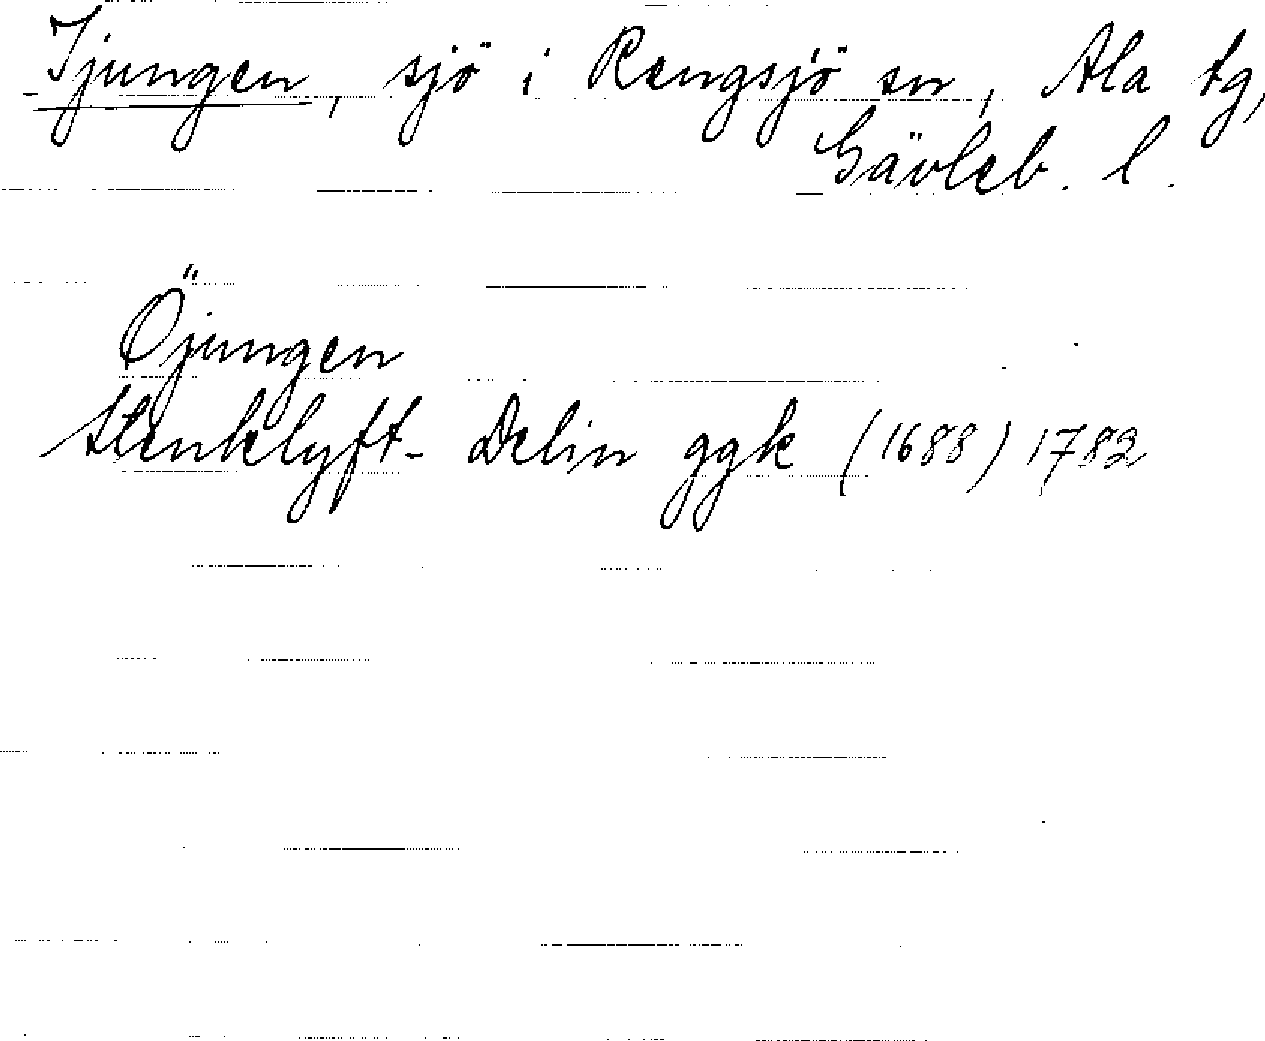 Tjungen, sjö i Rengsjö sn, Ala tg,
Gävleb. l.
Öjungen
Stenklyft- Delin ggk (1688) 1782